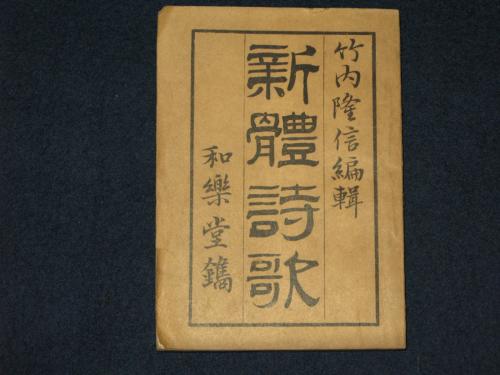 竹内隆信編輯
新體詩歌
和樂堂鐫